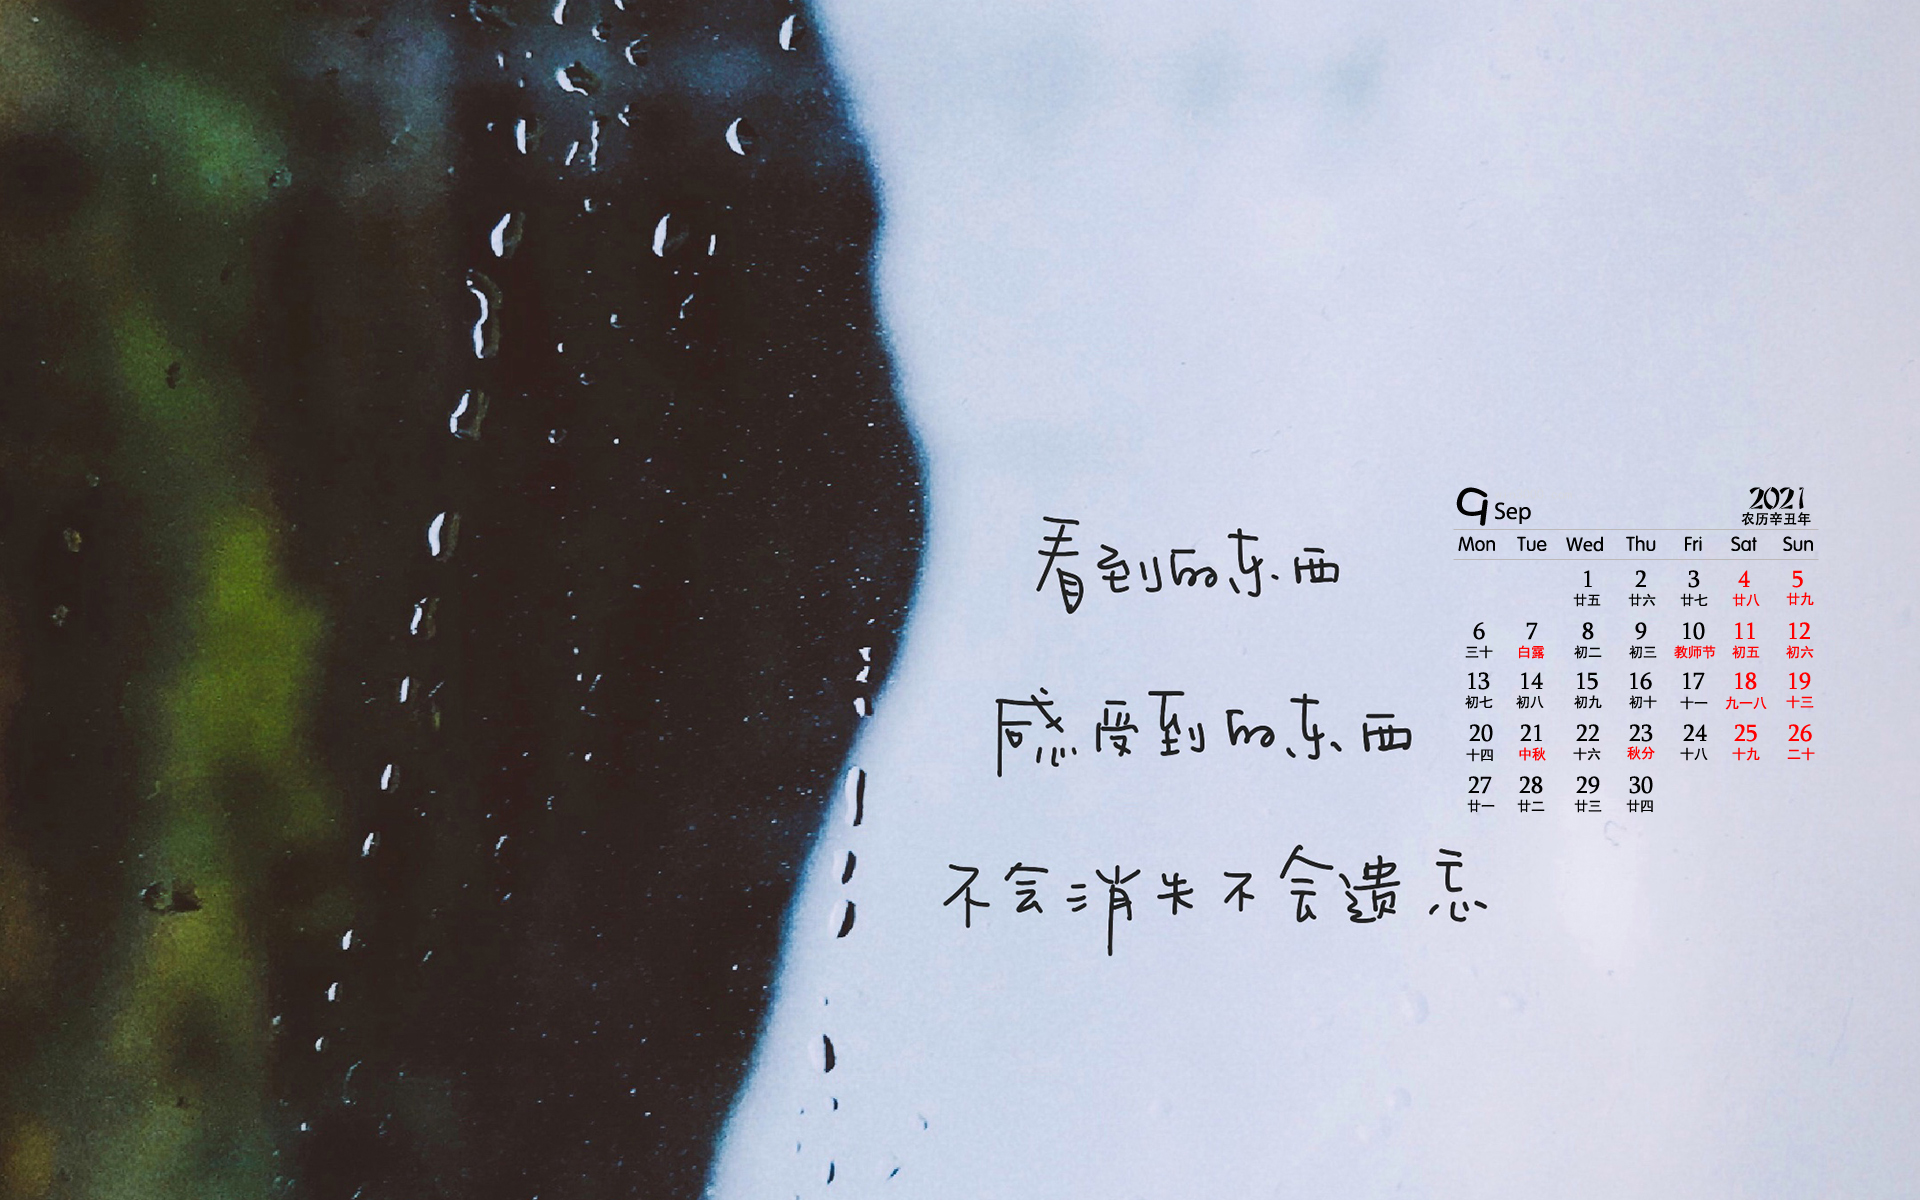 看到的东西
感受到的东西
不会消失不会遗忘
9 Sep 2021
农历辛丑年
Mon Tue Wed Thu Fri Sat Sun
1 2 3 4 5
廿五 廿六 廿七 廿八 廿九
6 7 8 9 10 11 12
三十 白露 初二 初三 教师节 初五 初六
13 14 15 16 17 18 19
初七 初八 初九 初十 十一 九一八 十三
20 21 22 23 24 25 26
十四 中秋 十六 秋分 十八 十九 二十
27 28 29 30
廿一 廿二 廿三 廿四